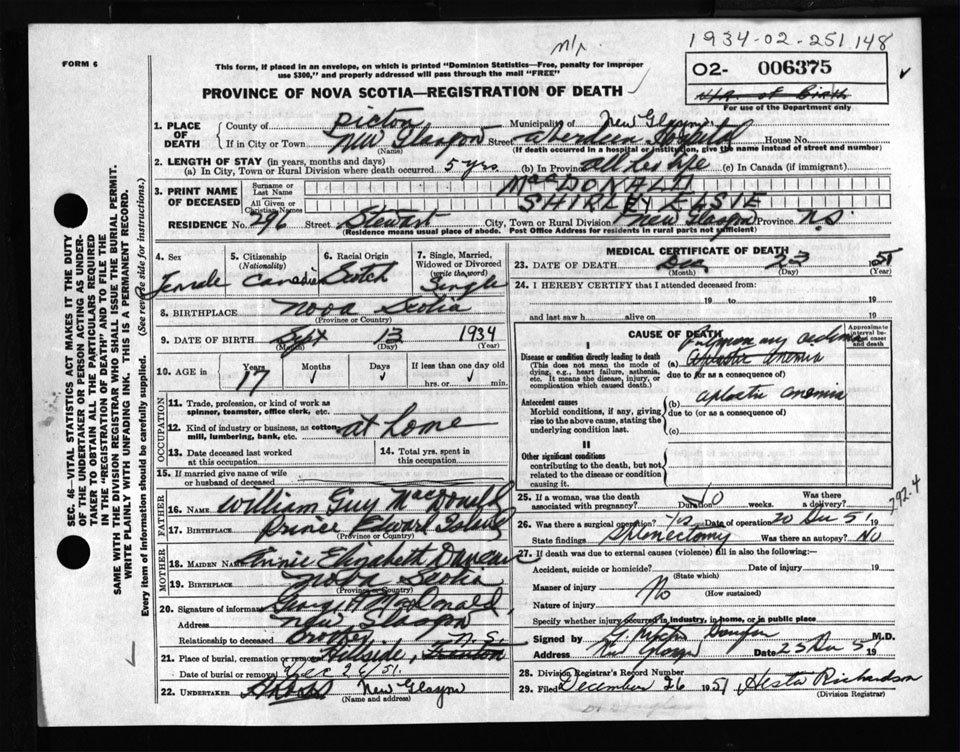 m/r
1934-02-251148
FORM 6
This form, if placed in an envelope, on which is printed "Dominion Statistics—Free, penalty for improper
use $300," and properly addressed will pass through the mail "FREE"
02- 006375
PROVINCE OF NOVA SCOTIA—REGISTRATION OF DEATH
For use of the Department only
1. PLACE OF DEATH County of Pictou Municipality of New Glasgow
If in City or Town New Glasgow Street Aberdeen Hospital House No.
(Name) (If death occurred in a hospital or institution, give the name instead of street and number)
2. LENGTH OF STAY (in years, months and days)
(a) In City, Town or Rural Division where death occurred 5 yrs (b) In Province all her life (c) In Canada (if immigrant)
3. PRINT NAME OF DECEASED Surname or Last Name MacDONALD
All Given or Christian Names SHIRLEY ELSIE
RESIDENCE No. 296 Street Stewart City, Town or Rural Division New Glasgow Province N.S.
(Residence means usual place of abode. Post Office Address for residents in rural parts not sufficient)
SEC. 46—VITAL STATISTICS ACT MAKES IT THE DUTY
OF THE UNDERTAKER OR PERSON ACTING AS UNDER-
TAKER TO OBTAIN ALL THE PARTICULARS REQUIRED
IN THE "REGISTRATION OF DEATH" AND TO FILE THE
SAME WITH THE DIVISION REGISTRAR WHO SHALL ISSUE THE BURIAL PERMIT.
WRITE PLAINLY WITH UNFADING INK. THIS IS A PERMANENT RECORD.
Every item of information should be carefully supplied. (See reverse side for instructions.)
4. Sex 5. Citizenship (Nationality) 6. Racial Origin 7. Single, Married, Widowed or Divorced (write the word)
Female Canadian Scotch Single
8. BIRTHPLACE Nova Scotia
(Province or Country)
9. DATE OF BIRTH Sept 13 1934
(Month) (Day) (Year)
10. AGE in Years Months Days If less than one day old
17 hrs. or min.
OCCUPATION
11. Trade, profession, or kind of work as
spinner, teamster, office clerk, etc.
12. Kind of industry or business, as cotton-
mill, lumbering, bank, etc. at home
13. Date deceased last worked
at this occupation
14. Total yrs. spent in
this occupation
15. If married give name of wife
or husband of deceased
FATHER
16. NAME William Guy MacDonald
17. BIRTHPLACE Prince Edward Island
(Province or Country)
MOTHER
18. MAIDEN NAME Annie Elizabeth Duncan
19. BIRTHPLACE Nova Scotia
(Province or Country)
20. Signature of informant George A MacDonald
Address New Glasgow
N.S.
Relationship to deceased Brother
21. Place of burial, cremation or removal Hillside, Trenton
Date of burial or removal Dec 26/51.
22. UNDERTAKER New Glasgow
(Name and address)
MEDICAL CERTIFICATE OF DEATH
23. DATE OF DEATH Dec 23 1951
(Month) (Day) (Year)
24. I HEREBY CERTIFY that I attended deceased from:
19 to 19
and last saw h alive on 19
CAUSE OF DEATH
Approximate interval between onset and death
I
Disease or condition directly leading to death
(This does not mean the mode of
dying, e.g., heart failure, asthenia,
etc. It means the disease, injury, or
complication which caused death.)
Pulmonary oedema
(a) aplastic anemia
due to (or as a consequence of)
Antecedent causes
Morbid conditions, if any, giving
rise to the above cause, stating the
underlying condition last.
(b) aplastic anemia
due to (or as a consequence of)
(c)
II
Other significant conditions
contributing to the death, but not
related to the disease or condition
causing it.
25. If a woman, was the death
associated with pregnancy? No Duration weeks. Was there a delivery?
292.4
26. Was there a surgical operation? Yes Date of operation 20 Dec 51 19
State findings Splenectomy Was there an autopsy? No
27. If death was due to external causes (violence) fill in also the following:—
Accident, suicide or homicide? Date of injury 19
(State which)
Manner of injury No
(How sustained)
Nature of injury
Specify whether injury occurred in industry, in home, or in public place
Signed by M.D.
Address New Glasgow Date 23 Dec 51 19
28. Division Registrar's Record Number
29. Filed December 26 1951 Hesta Richardson
(Division Registrar)